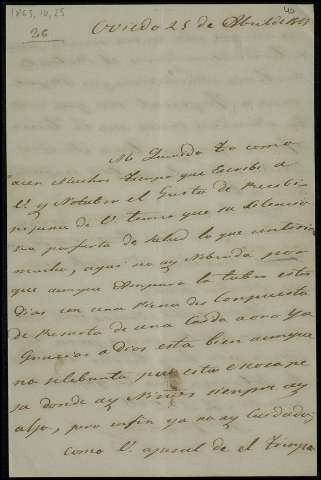 1863, IV, 25
26
40
Oviedo 25 de Abril de 1863
Mi Querido Tio como
acen Muchos tiempo que Escribi a
V. y Notubo el Gusto de Recibir
ninguna de V. temo que su silencio
sea por falta de salud lo que sentiria
mucho, aqui no ay Nobeda por
que aunque Amparo la tubo estos
dias con una Pierna des compuesta
de Resulta de una Caida aora Ya
Gracias a Dios esta bien aunque
no se lebanta pues estas cosas
sa donde ay Niños sienpre ay
algo, pero enfin ya no ay Cuidado;
como V. de el tienpo